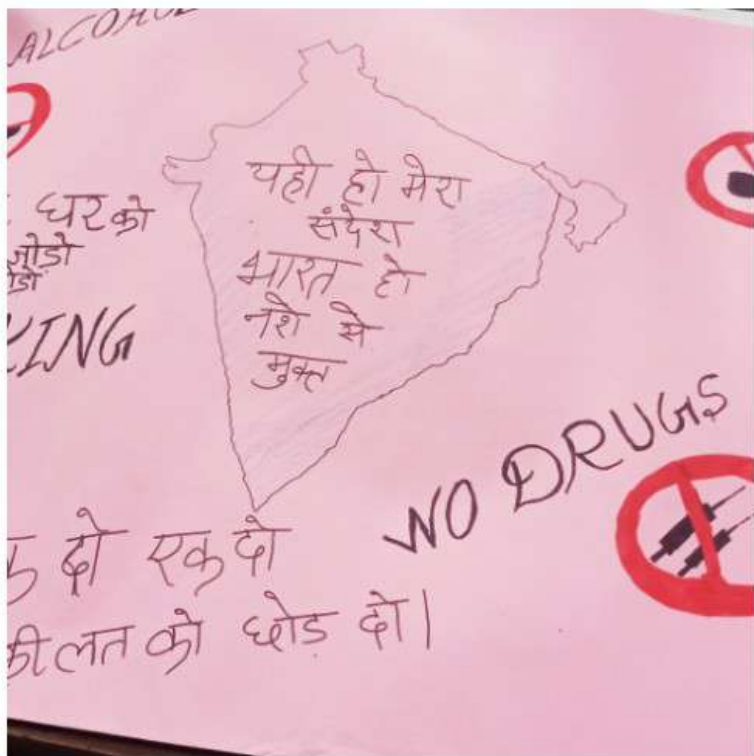 ALCOHOL
घर को
जोड़ो
यही हो मेरा
संदेश
भारत हो
नशे से
मुक्त
KING
NO DRUGS
दो एक दो
की लत को छोड़ दो।